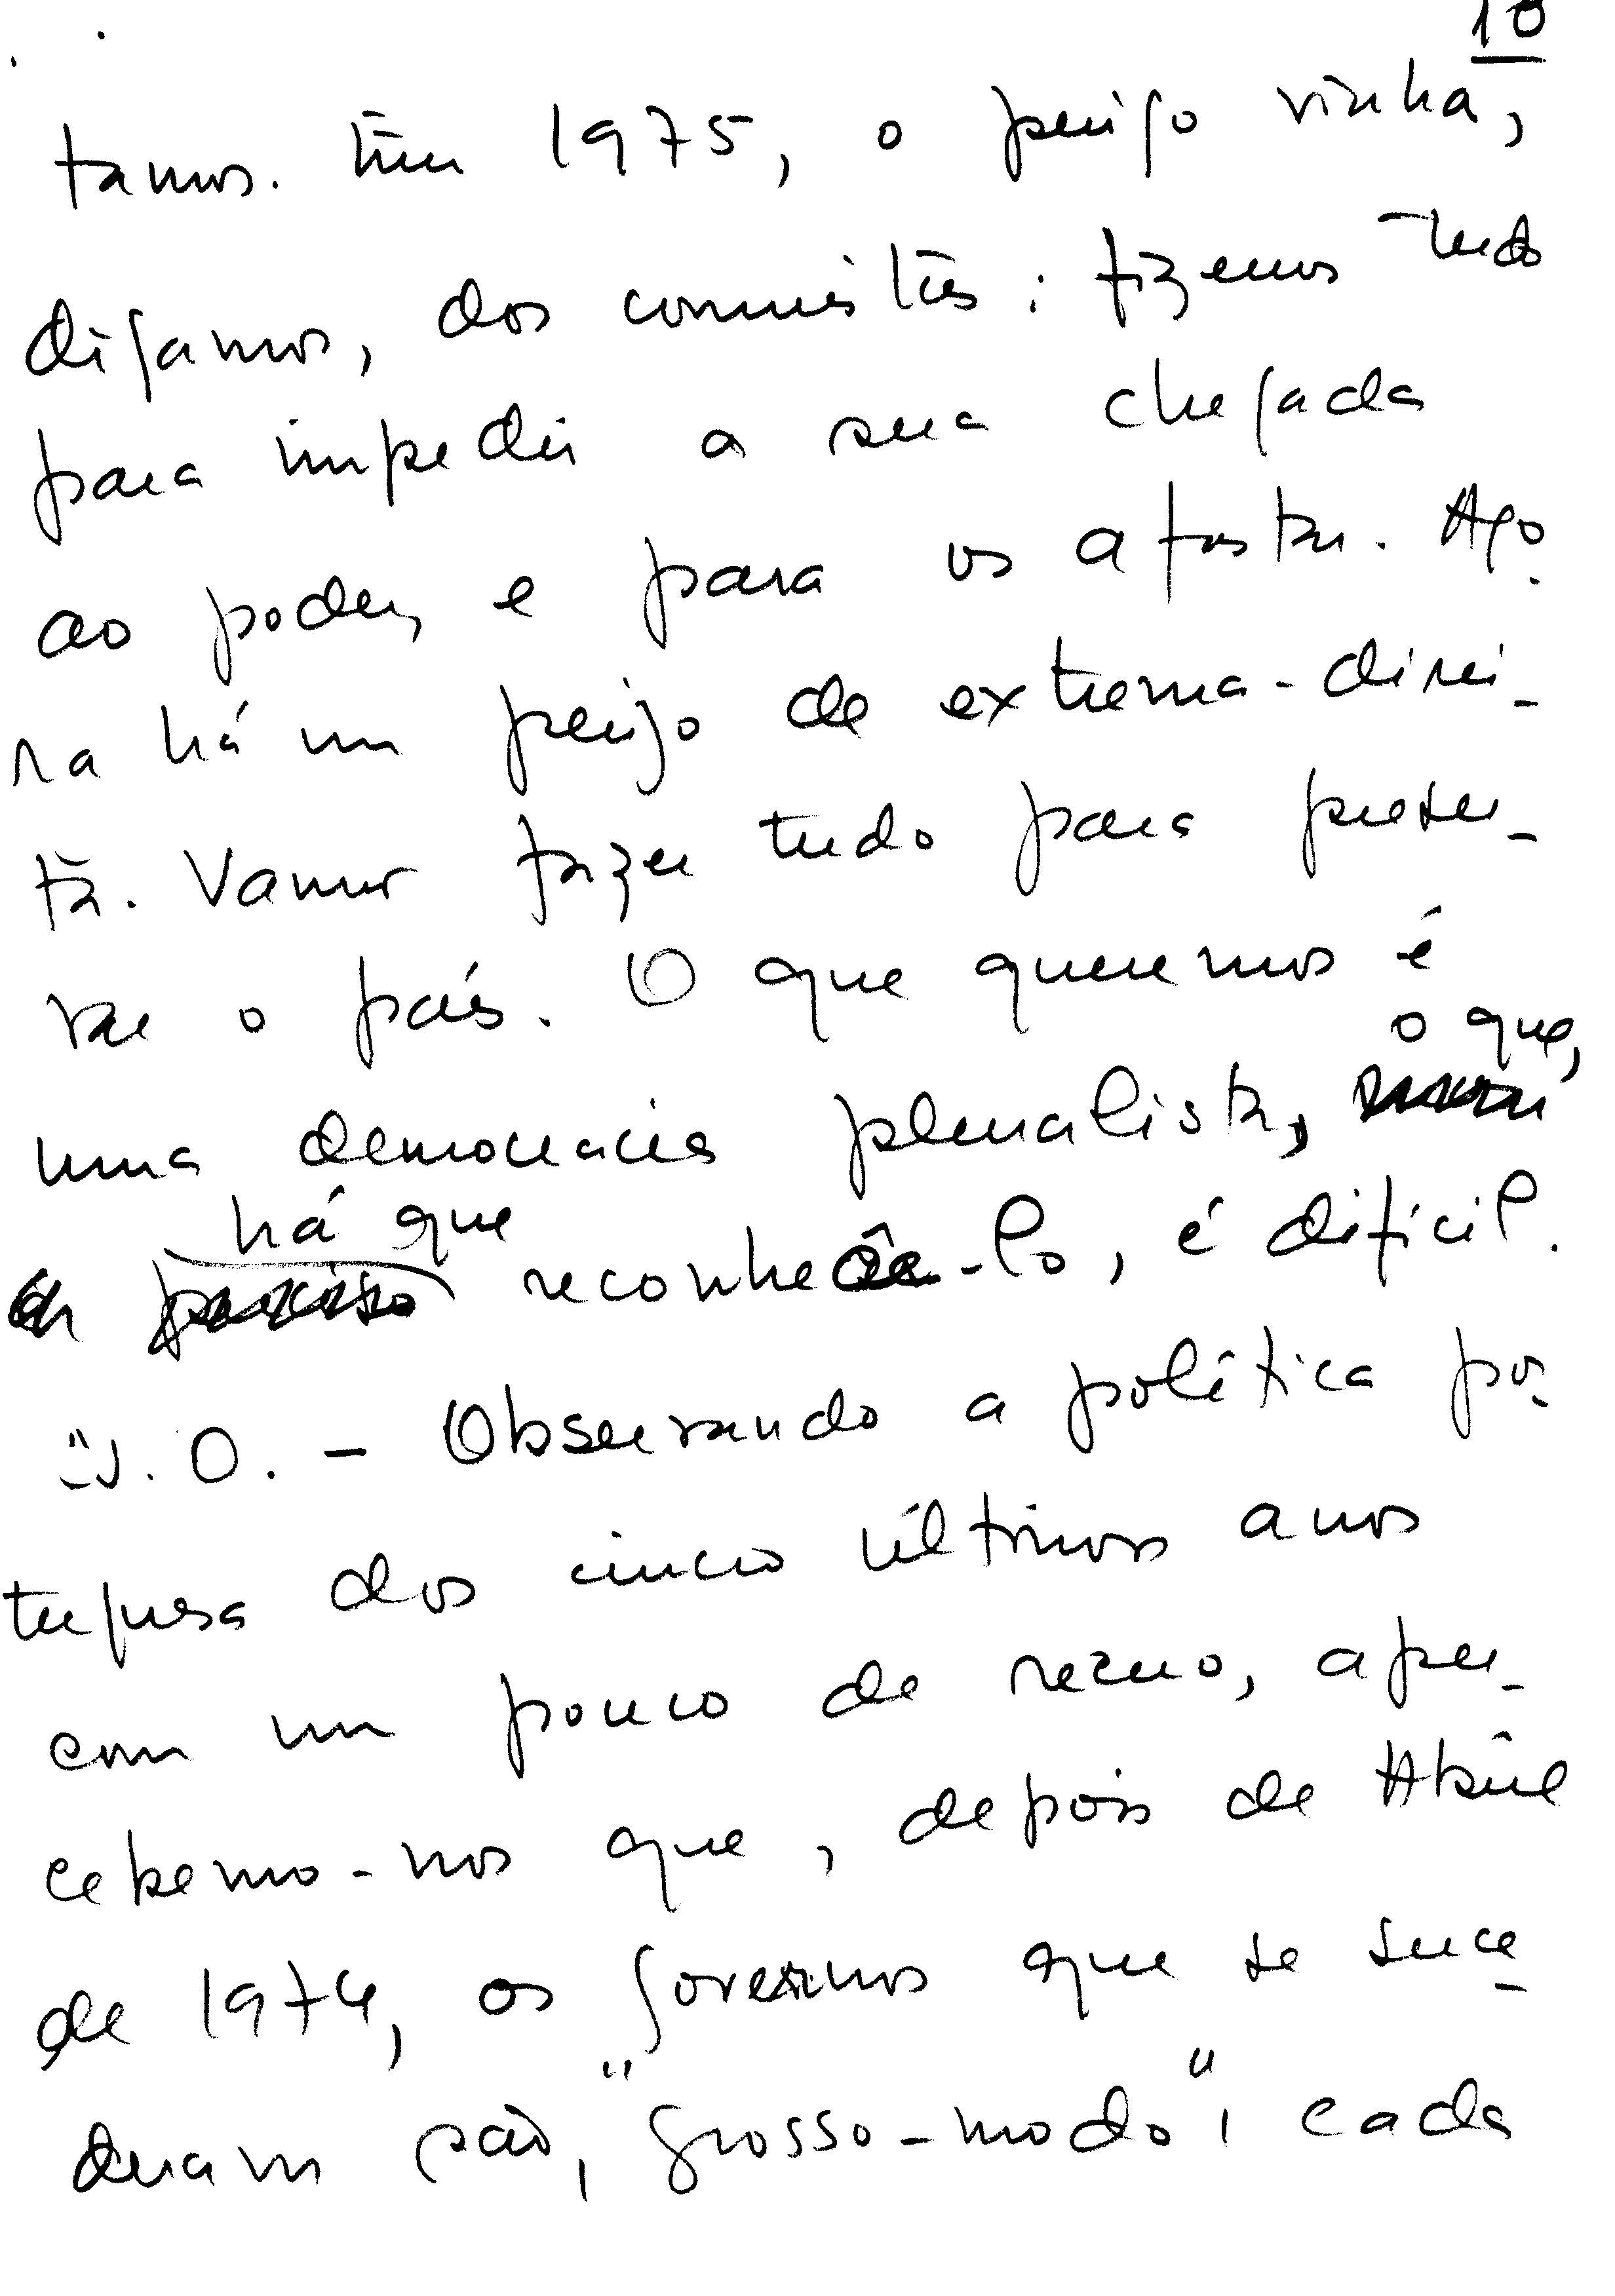 10
tamos. Em 1975, o perigo vinha,
digamos, dos comunistas: fizemos tudo
para impedir a sua chegada
ao poder, e para os afastar. Ago-
ra há um perigo de extrema-direi-
ta. Vamos fazer tudo para preser-
var o país. O que queremos é
o que,
uma democracia pluralista,
há que
preciso reconhecê-lo, é difícil.
"J. O. - Observando a política por-
tuguesa dos cinco últimos anos
com um pouco de recuo, aper-
cebemo-nos que, depois de Abril
de 1974, os governos que se suce-
deram são, "grosso-modo", cada